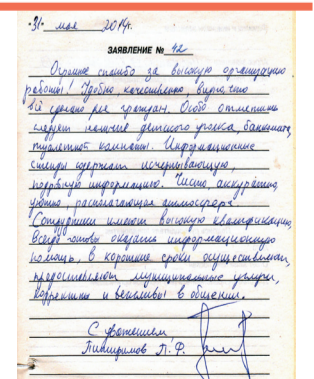 "31" мая 2014г.
ЗАЯВЛЕНИЕ № 42
Огромное спасибо за высокую организацию
работы! Удобно, качественно, видно, что
всё сделано для граждан. Особо отметить
следует наличие детского уголка, банкомата,
туалетной комнаты. Информационные
стенды содержат исчерпывающую,
подробную информацию. Чисто, аккуратно,
уютно, располагающая атмосфера.
Сотрудники имеют высокую квалификацию,
всегда готовы оказать информационную
помощь, в короткие сроки осуществляют,
предоставляют муниципальные услуги,
корректны и вежливы в общении.
С уважением
П. Ф.